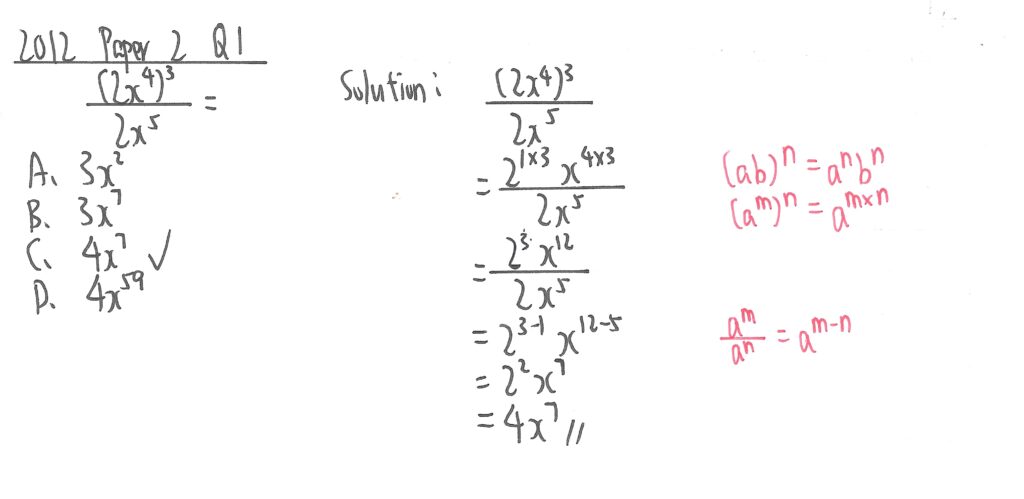 2012 Paper 2 Q1
(2x⁴)³ / 2x⁵ =
A. 3x²
B. 3x⁷
C. 4x⁷ ✓
D. 4x⁵⁹
Solution:
(2x⁴)³ / 2x⁵
= 2^(1×3) x^(4×3) / 2x⁵
= 2³ x¹² / 2x⁵
= 2^(3-1) x^(12-5)
= 2² x⁷
= 4x⁷ //
(ab)ⁿ = aⁿbⁿ
(aᵐ)ⁿ = a^(m×n)
aᵐ / aⁿ = a^(m-n)